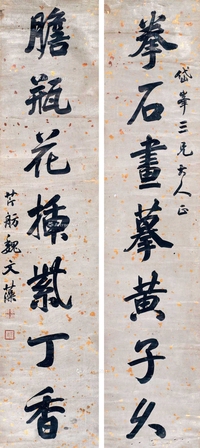 拳石畫摹黃子久
岱峯三兄大人正
膽瓶花插紫丁香
芹舫魏文藻